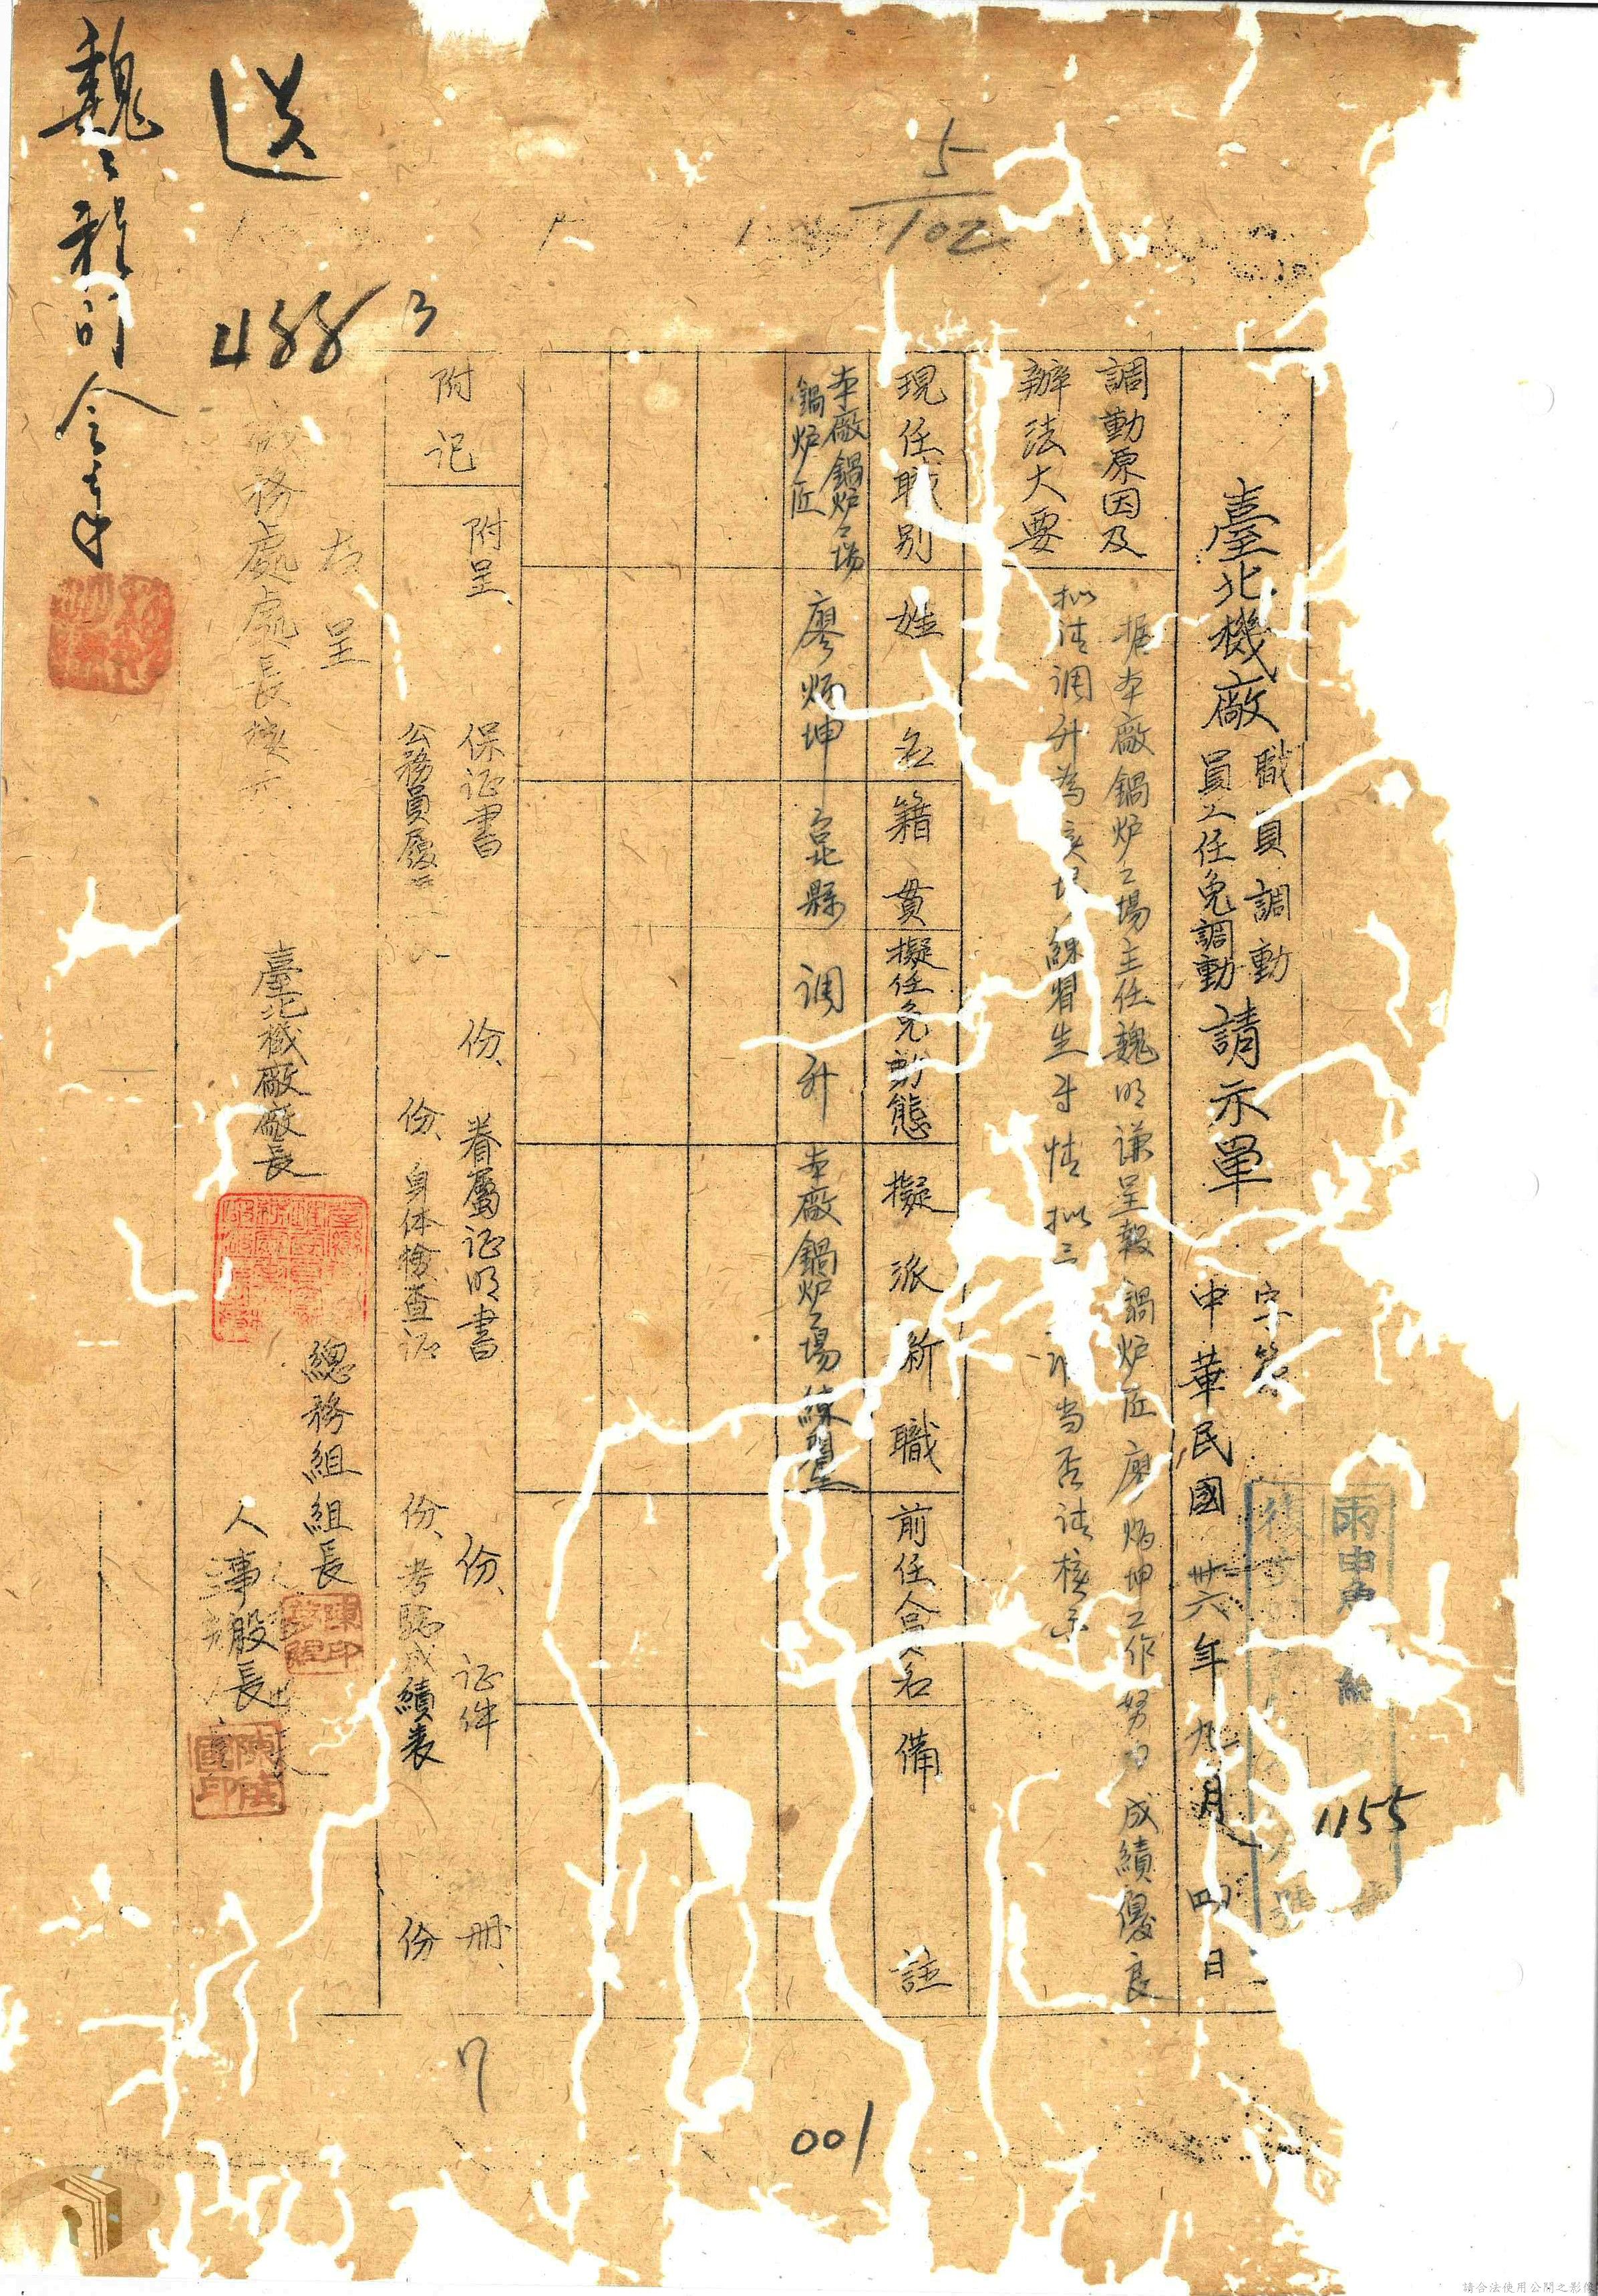 臺北機廠
職員調動
員工任免調動
請示單
字第
中華民國卅六年九月四日
1155
調動原因及
辦法大要
據本廠鍋炉工場主任魏明谦呈報鍋炉匠廖炳坤工作努力成績優良
拟请调升為
練習生
情拟
当否请核示
現任職別
姓名
籍貫
擬任免動態
擬派新職
前任人員名
備註
本廠鍋炉工場
鍋炉匠
廖炳坤
台北縣
调升
本廠鍋炉工場練習生
附记
附呈、
保证書
份、
眷屬证明書
份、
证件
册、
公務員履
份、
身体檢查证
份、
考驗成績表
份
右呈
處處長
臺北機廠廠長
總務組組長
人事股長
陳盛國印
送
488
3
5/102
7
001
請合法使用公開之影像